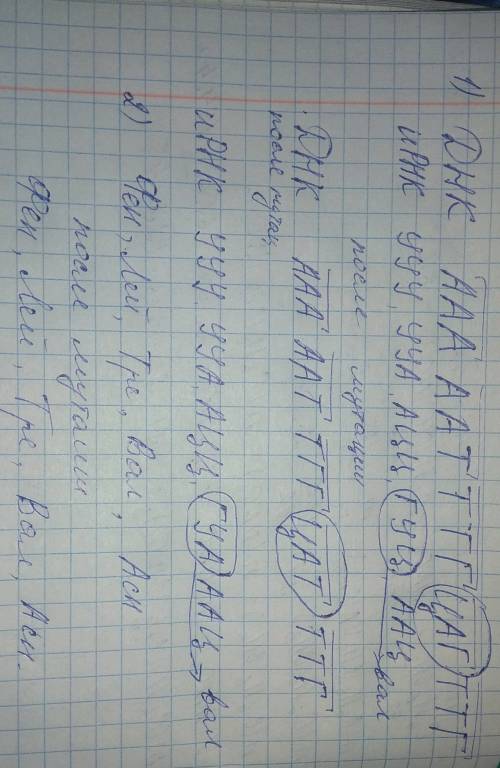 1) ДНК ААА ААТ ТТГ ЦАГ ТТГ
иРНК УУУ, УУА, АЦЦ, ГУЦ, ААЦ → вал
после мутации
ДНК ААА ААТ ТГГ ЦАТ ТТГ
после мутац
иРНК УУУ УУА, АЦЦ, ГУА ААЦ → вал
2) Фен, Лей, Тре, Вал, Асн
после мутации
Фен, Лей, Тре, Вал, Асн.